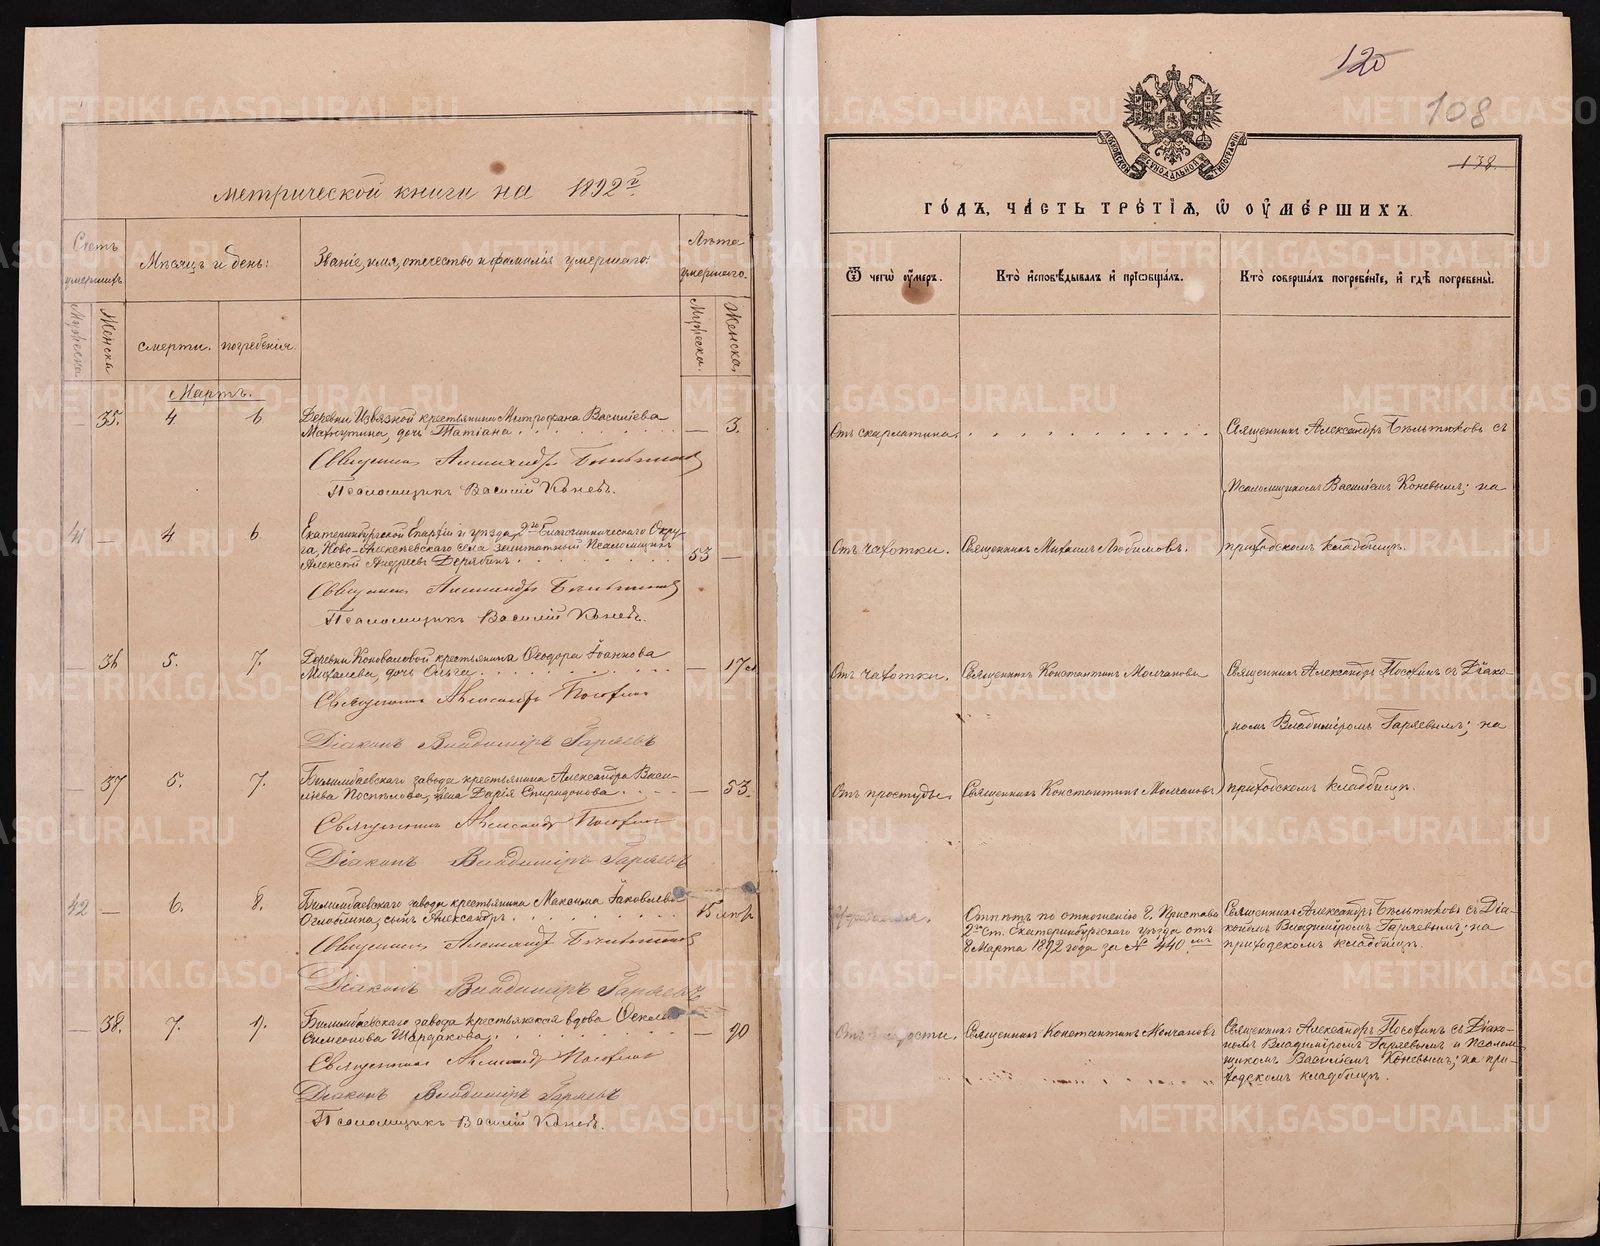 метрической книги на 1892й
Счетъ умершихъ.
Мѣсяцъ и день:
Званіе, имя, отечество и фамилія умершаго:
Лѣта умершаго.
Мужеска
Женска
смерти.
погребенія
Мужеска.
Женска.
Мартъ.
— 35. 4 6 Деревни Извязкой крестьянина Митрофана Васильева
дочь Татіана. — 3.
Священникъ Александръ Бѣльтюковъ
Псаломщикъ Василій Коневъ.
41 — 4 6 Екатеринбургской Епархіи и уѣзда, 2го Благочинническаго Окру-
га, Ново-Алексѣевскаго села заштатный Псаломщикъ
Алексѣй Андреевъ Дерябинъ. 53 —
Священникъ Александръ Бѣльтюковъ
Псаломщикъ Василій Коневъ.
— 36 5. 7. Деревни Коноваловой крестьянина Ѳеодора Іоаннова
Михалева, дочь Ольга. — 17
Священникъ Александръ Посохинъ
Діаконъ Владиміръ Гаряевъ
— 37 5. 7. Билимбаевскаго завода крестьянина Александра Васи-
льева Поспѣлова, жена Дарія Спиридонова. — 53.
Священникъ Александръ Посохинъ
Діаконъ Владиміръ Гаряевъ
42 — 6. 8. Билимбаевскаго завода крестьянина Максима Іаковлева
Оглоблина, сынъ Александръ. 15
Священникъ Александръ Бѣльтюковъ
Діаконъ Владиміръ Гаряевъ
— 38. 7. 9. Билимбаевскаго завода крестьянская вдова
Симеонова Шардакова. — 90
Священникъ Александръ Посохинъ
Діаконъ Владиміръ Гаряевъ
Псаломщикъ Василій Коневъ.
120
108
138
МОСКОВСКОЙ СѴНОДАЛЬНОЙ ТИПОГРАФІИ
ГОДЪ, ЧАСТЬ ТРЕТІЯ, Ѽ ОУМЕРШИХЪ.
Ѿ чегѡ оумеръ.
Кто исповѣдывалъ и пріѡбщалъ.
Кто совершалъ погребеніе, и гдѣ погребены.
Отъ скарлатины.
Священникъ Александръ Бѣльтюковъ съ
Псаломщикомъ Василіемъ Коневымъ; на
Отъ чахотки. Священникъ Михаилъ Любимовъ. приходскомъ кладбищѣ.
Отъ чахотки. Священникъ Константинъ Молчановъ Священникъ Александръ Посохинъ съ Діако-
номъ Владиміромъ Гаряевымъ; на
Отъ простуды. Священникъ Константинъ Молчановъ приходскомъ кладбищѣ.
Отпѣтъ по отношенію Г. Пристава
2го Ст. Екатеринбургскаго уѣзда отъ
8 Марта 1892 года за № 440мъ
Священникъ Александръ Бѣльтюковъ съ Діа-
кономъ Владиміромъ Гаряевымъ; на
приходскомъ кладбищѣ.
Отъ старости. Священникъ Константинъ Молчановъ
Священникъ Александръ Посохинъ съ Діако-
номъ Владиміромъ Гаряевымъ и Псалом-
щикомъ Василіемъ Коневымъ; на при-
ходскомъ кладбищѣ.
METRIKI.GASO-URAL.RU